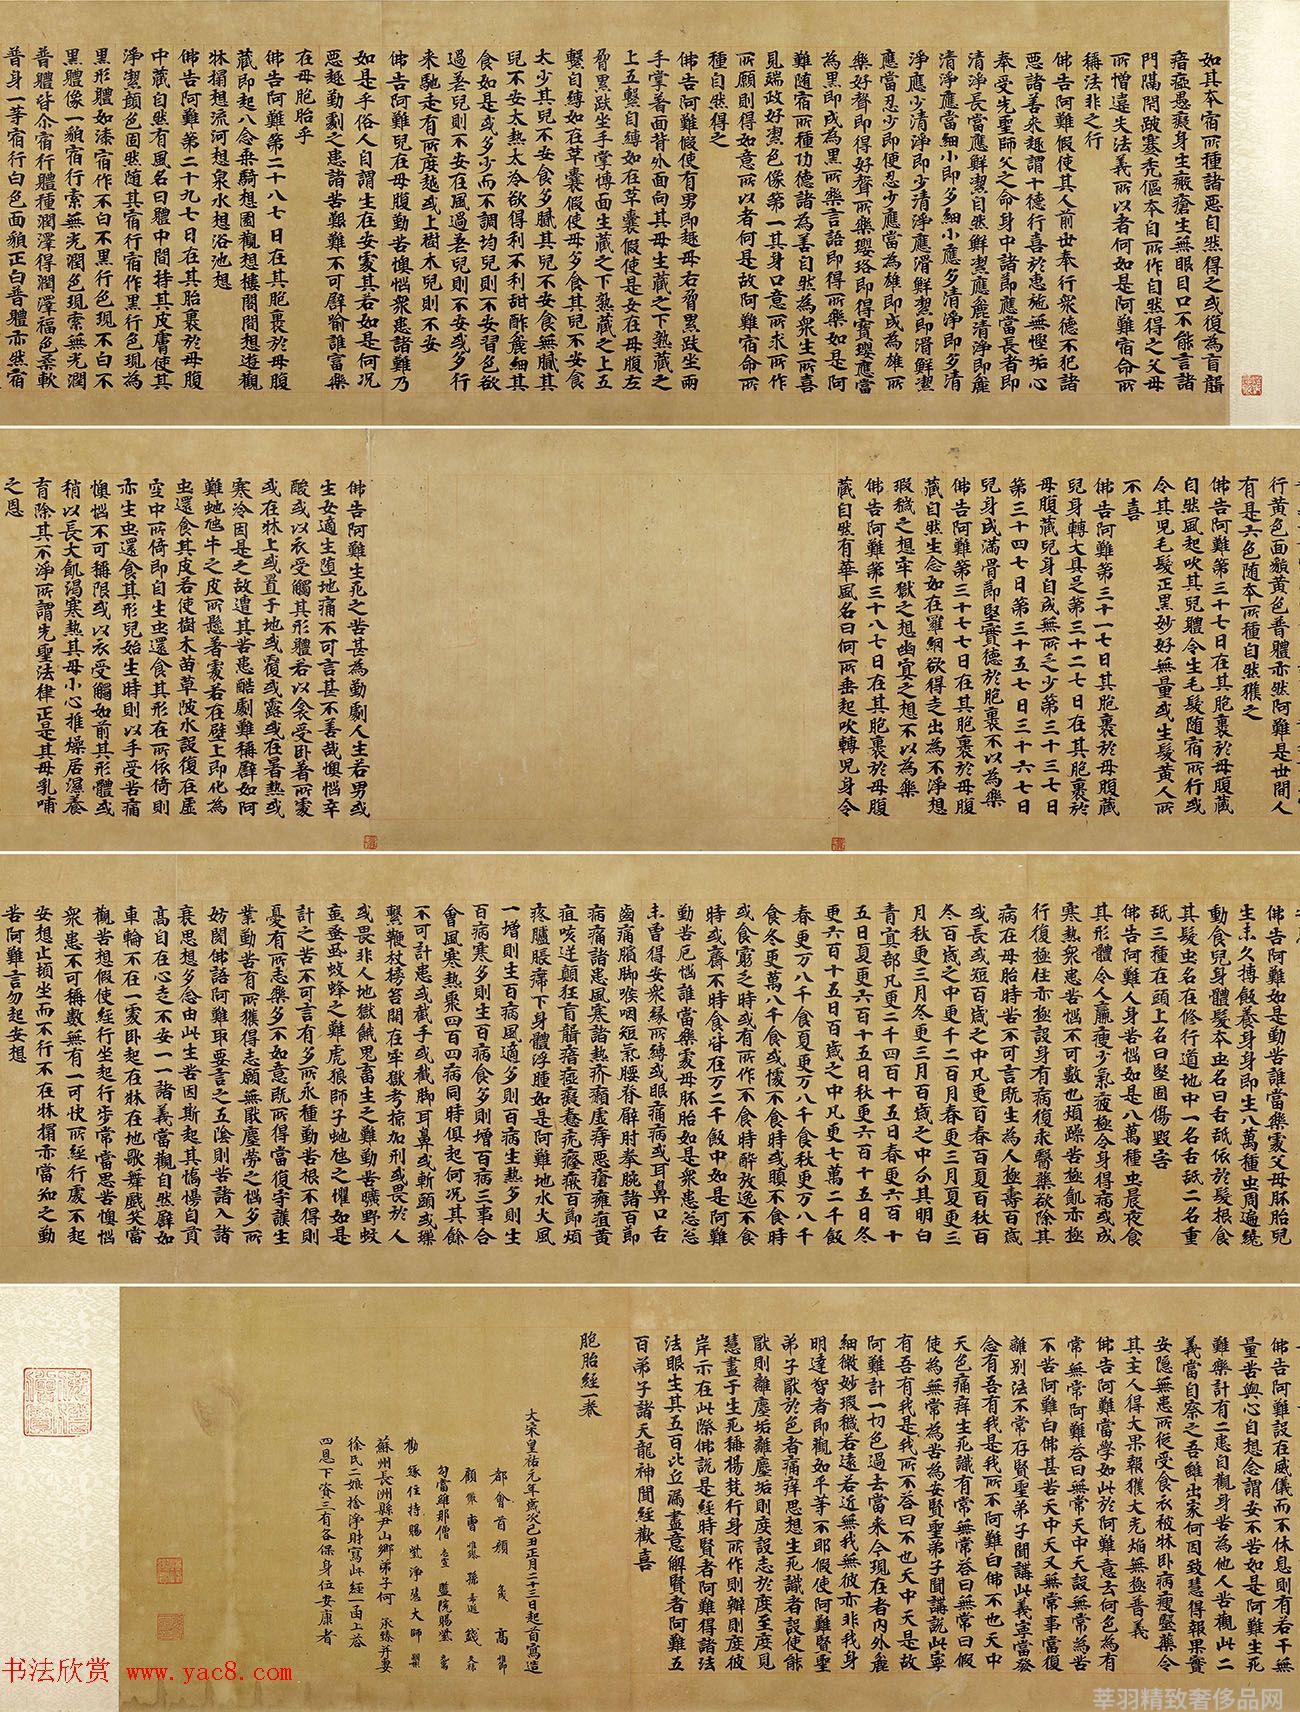 如其本宿所種諸惡自然得之或復為盲聾
瘖瘂愚癡身生瘢瘡生無眼目口不能言諸
門隔閉跛蹇禿傴本自所作自然得之父母
所憎違失法義所以者何如是阿難宿命所
種非法之行
佛告阿難假使其人前世奉行眾德不犯諸
惡諸善來趣謂十德行喜於惠施無慳垢心
奉受先聖師父之命身中諸節應當長者即
清淨長當應鮮潔自然鮮潔應麁清淨即麁
清淨應當細小即多細小應多清淨即多清
淨應少清淨即少清淨應滑鮮潔即滑鮮潔
應當忍少即便忍少應當為雄即或為雄所
樂好聲即得好聲所樂瓔珞即得寶瓔應當
為黑即或為黑所樂言語即得所樂如是阿
難隨宿所種功德諸為善自然為眾生所喜
見端政好潔色像第一其身口意所求所作
所願則得如意所以者何是故阿難宿命所
種自然得之
佛告阿難假使有男即趣母右脅累趺坐兩
手掌著面背外面向其母生藏之下熟藏之
上五繫自縛如在草囊假使是女在母腹左
脅累趺坐手掌博面生藏之下熟藏之上五
繫自縛如在草囊假使母多食其兒不安食
太少其兒不安食多膩其兒不安食無膩其
兒不安太熱太冷欲得利不利甜酢麁細其
食如是或多少而不調均兒則不安習色欲
過差兒則不安在風過差兒則不安或多行
來馳走有所度越或上樹木兒則不安
佛告阿難兒在母腹勤苦懊惱眾患諸難乃
如是乎俗人自謂生在安處其若如是何況
惡趣勤劇之患諸苦艱難不可譬喻誰當樂
在母胞胎乎
佛告阿難第二十八七日在其胞裹於母腹
藏即起八念乘騎想園觀想樓閣間想遊觀
牀榻想流河想泉水想浴池想
佛告阿難第二十九七日在其胎裹於母腹
中藏自然有風名曰髓中間持其皮膚使其
淨潔顏色固然隨其宿行宿作黑行色現為
黑形體如漆宿作不白不黑行色現不白不
黑體像一貌宿行素無光潤色現索無光潤
普體皆爾宿行體種潤澤得潤澤福色柔軟
普身一等宿行白色面貌正白普體亦然宿
行黃色面貌黃色普體亦然阿難是世間人
有是六色隨本所種自然獲之
佛告阿難第三十七日在其胞裹於母腹藏
自然風起吹其兒體令生毛髮隨宿所行或
令其兒毛髮正黑妙好無量或生髮黃人所
不喜
佛告阿難第三十一七日其胞裹於母腹藏
兒身轉大具足第三十二七日在其胞裹於
母腹藏兒身自成無所乏少第三十三七日
第三十四七日第三十五七日三十六七日
兒身成滿骨節堅實德於胞裹不以為樂
佛告阿難第三十七七日在其胞裹於母腹
藏自然生念如在羅網欲得走出為不淨想
瑕穢之想牢獄之想幽冥之想不以為樂
佛告阿難第三十八七日在其胞裹於母腹
藏自然有華風名曰何所垂起吹轉兒身令
佛告阿難生死之苦甚為勤劇人生若男或
生女適生墮地痛不可言甚不善哉懊惱辛
酸或以衣受觸其形體若以衾受臥著所處
或在牀上或置于地或覆或露或在暑熱或
寒冷因是之故遭其苦患酷劇難稱譬如阿
難虵虺牛之皮所懸著處若在壁上即化為
虫還食其皮若使樹木苗草陂水設復在虛
空中所倚即自生虫還食其形在所依倚則
亦生虫還食其形兒始生時則以手受苦痛
懊惱不可稱限或以衣受觸如前其形體或
稍以長大飢渴寒熱其母小心推燥居濕養
育除其不淨所謂先聖法律正是其母乳哺
之恩
佛告阿難如是勤苦誰當樂處父母胚胎兒
生未久搏飯養身身即生八萬種虫周遍繞
動食兒身體髮本虫名曰舌舐依於髮根食
其髮虫名在修行道地中一名舌舐二名重
舐三種在頭上名曰堅固傷毀害
佛告阿難人身苦惱如是八萬種虫晨夜食
其形體令人羸瘦少氣疲極令身得病或成
寒熱眾患苦惱不可數也煩躁苦極飢亦極
行復極住亦極設身有病復求醫藥欲除其
病在母胎時苦不可言既生為人極壽百歲
或長或短百歲之中凡更百春百夏百秋百
冬百歲之中更千二百月春更三月夏更三
月秋更三月冬更三月百歲之中分其明白
青冥部凡更二千四百十五日春更六百十
五日夏更六百十五日秋更六百十五日冬
更六百十五日百歲之中凡更七萬二千飯
春更万八千食夏更万八千食秋更万八千
食冬更萬八千食或懅不食時或瞋不食時
或食窮乏時或有所作不食時醉放逸不食
時或齋不時食皆在万二千飯中如是阿難
勤苦厄惱誰當樂處母胚胎如是眾患怱怱
未曾得安眾緣所縛或眼痛病或耳鼻口舌
齒痛膑脚喉咽短氣腰脊臂肘拳腕諸百節
病痛諸患風寒諸熱疥癩虛痔惡瘡癰疽黃
疸咳逆顛狂盲聾瘖瘂癡憃疣瘞癥百節煩
疼臚脹滯下身體浮腫如是阿難地水火風
一增則生百病風適多則百病生熱多則生
百病寒多則生百病食多則增百病三事合
會風寒熱聚四百四病同時俱起何況其餘
不可計患或截手或截脚耳鼻或斬頭或瑮
繫鞭杖榜笞閉在牢獄考掠加刑或畏於人
或畏非人地獄餓鬼畜生之難勤苦曠野蚊
䖟蚤虱蚊蜂之難虎狼師子虵虺之懼如是
計之苦不可言有多所永種勤苦根不得則
憂有所志樂多不如意既所得當復守護生
業勤苦有所獲得志願無厭塵勞之惱多所
妨閡佛語阿難取要言之五陰則苦諸入諸
衰思想多念由此生苦因斯起其憍慢自貢
高自在心走不安一一諸義當觀自然譬如
車輪不在一處臥起在牀在地歌舞戲笑當
觀苦想假使經行坐起行步常當思苦懊惱
眾患不可稱數無有一可快所經行處不起
安想止頓坐而不行不在牀榻亦當知之動
苦阿難言勿起安想
佛告阿難設在威儀而不休息則有若干無
量苦與心自想念謂安不苦如是阿難生死
難樂計有二患自觀身苦為他人苦觀此二
義當自察之吾雖出家何因致慧得報果實
安隱無患所從受食衣被牀臥病瘦醫藥令
其主人得大果報獲大光焰無極普義
佛告阿難當學如此於阿難意去何色為有
常無常阿難答曰無常天中天設無常為苦
不苦阿難白佛甚苦天中天又無常事當復
離別法不常存賢聖弟子聞講此義寧當發
念有吾有我是我所不阿難白佛不也天中
天色痛痒生死識有常無常答曰無常曰假
使為無常為苦為安賢聖弟子聞講說此寧
有吾有我是我所不答曰不也天中天是故
阿難計一切色過去當來今現在者內外麁
細微妙瑕穢若遠若近無我無彼亦非我身
明達智者即觀如平等不耶假使阿難賢聖
弟子厭於色者痛痒思想生死識者設使能
厭則離塵垢離塵垢則度設志於度至度見
慧盡于生死稱楊梵行身所作則辦則度彼
岸示在此際佛說是經時賢者阿難得諸法
法眼生其五百比丘漏盡意解賢者阿難五
百弟子諸天龍神聞經歡喜
胞胎經一卷
大宋皇祐元年歲次己丑正月二十三日起首寫造
都會首顧 高
顧 曹 孫 錢
勾當雜那僧 監院賜紫
勸緣住持賜紫淨 大師
蘇州長洲縣尹山鄉弟子何 承臻并妻
徐氏二娘捨淨財寫此經一函上答
四恩下資三有各保身位安康者
书法欣赏 www.yac8.com
莘羽精致奢侈品网